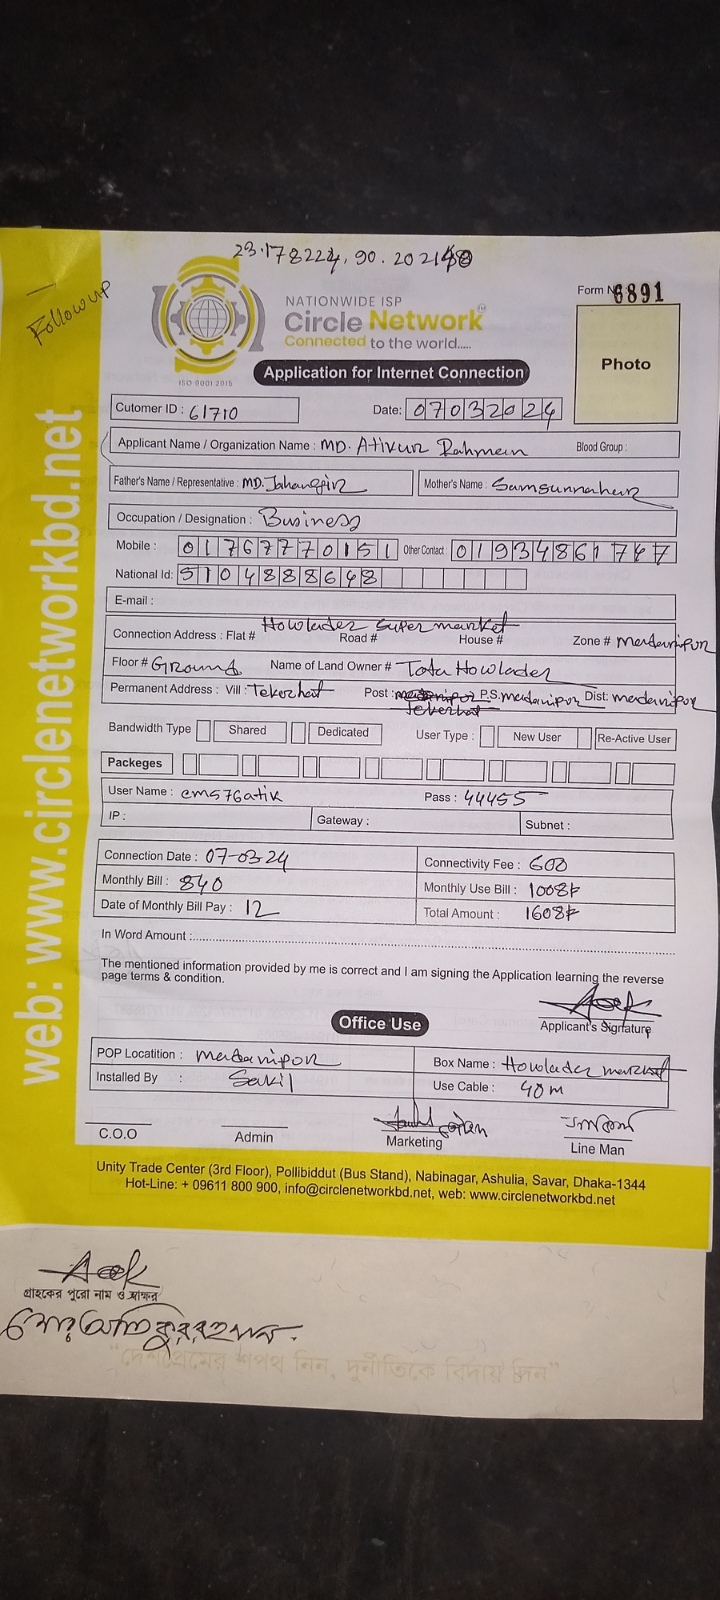 23.178224, 90.202148
Follow up
NATIONWIDE ISP
Circle Network
Connected to the world.....
ISO 9001:2015
Form No 6891
Photo
Application for Internet Connection
Cutomer ID : 61710 Date: 07032024
Applicant Name / Organization Name : MD. Atikur Rahman Blood Group :
Father's Name / Representative : MD. Jahangir Mother's Name : Samsunnahar
Occupation / Designation : Business
Mobile : 01767770151 Other Contact : 01934861747
National Id: 5104888648
E-mail :
Howlader Super market
Connection Address : Flat # Road # House # Zone # madaripur
Floor # Ground Name of Land Owner # Tota Howlader
Permanent Address : Vill : Tekerhat Post : Tekerhat P.S. madaripur Dist: madaripur
Bandwidth Type Shared Dedicated User Type : New User Re-Active User
Packeges
User Name : cms76atik Pass : 44455
IP : Gateway : Subnet :
Connection Date : 07-03-24 Connectivity Fee : 600
Monthly Bill : 840 Monthly Use Bill : 1008৳
Date of Monthly Bill Pay : 12 Total Amount : 1608৳
In Word Amount :
The mentioned information provided by me is correct and I am signing the Application learning the reverse
page terms & condition.
Applicant's Signature
Office Use
POP Locatition : madaripur Box Name : Howlader market
Installed By : Sakil Use Cable : 40 m
C.O.O Admin Marketing Line Man
Unity Trade Center (3rd Floor), Pollibiddut (Bus Stand), Nabinagar, Ashulia, Savar, Dhaka-1344
Hot-Line: + 09611 800 900, info@circlenetworkbd.net, web: www.circlenetworkbd.net
web: www.circlenetworkbd.net
গ্রাহকের পুরো নাম ও স্বাক্ষর
মোঃ আতিকুর রহমান.
"দেশপ্রেমের শপথ নিন, দুর্নীতিকে বিদায় দিন"